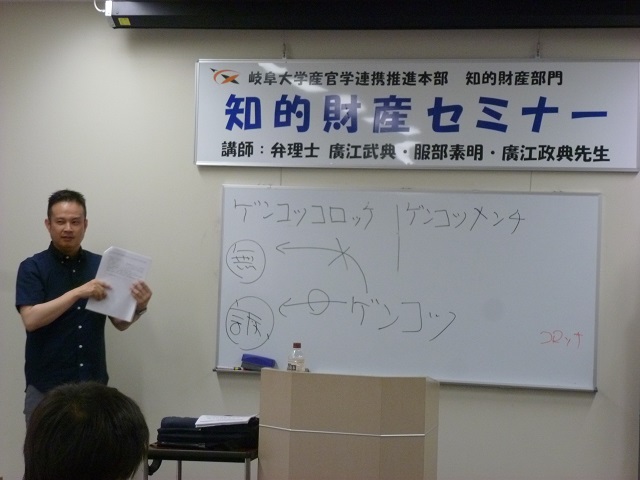 岐阜大学産官学連携推進本部 知的財産部門
知的財産セミナー
講師：弁理士 廣江武典・服部素明・廣江政典先生
ゲンコツコロッケ ゲンコツメンチ
無
ゲンコツ
コロッケ